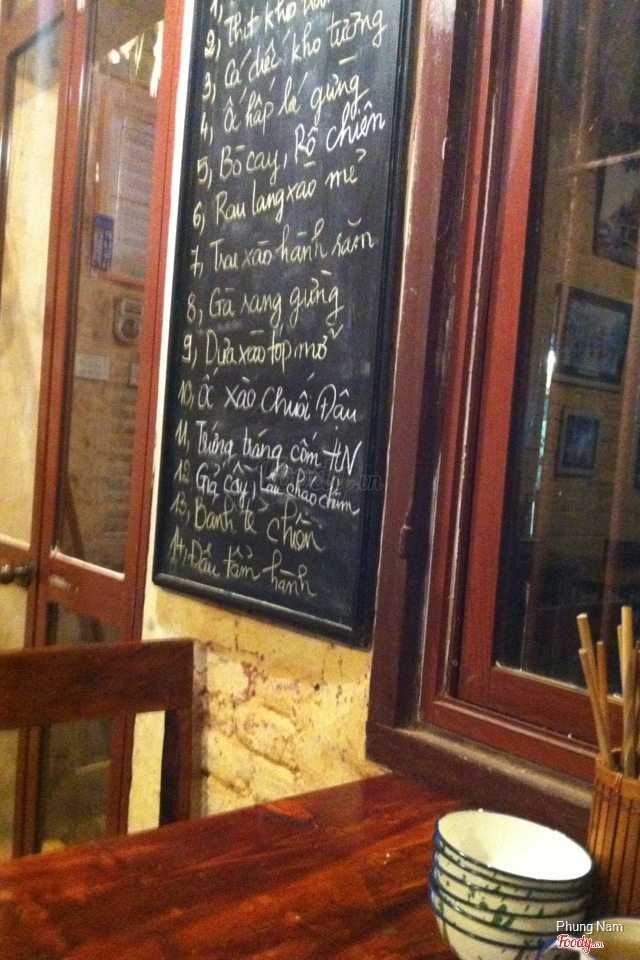 1,
2, Thịt kho
3, Cá diếc kho tương
4, Ốc hấp lá gừng
5, Bò cay, Rô chiên
6, Rau lang xào mẻ
7, Trai xào hành răm
8, Gà rang gừng
9, Dưa xào tóp mỡ
10, Ốc xào chuối Đậu
11, Trứng tráng cốm HN
12, Giả cầy, Lẩu cháo chim
13, Bánh tẻ chiên
14, Đậu tẩm hành
Phung Nam
Foody.vn